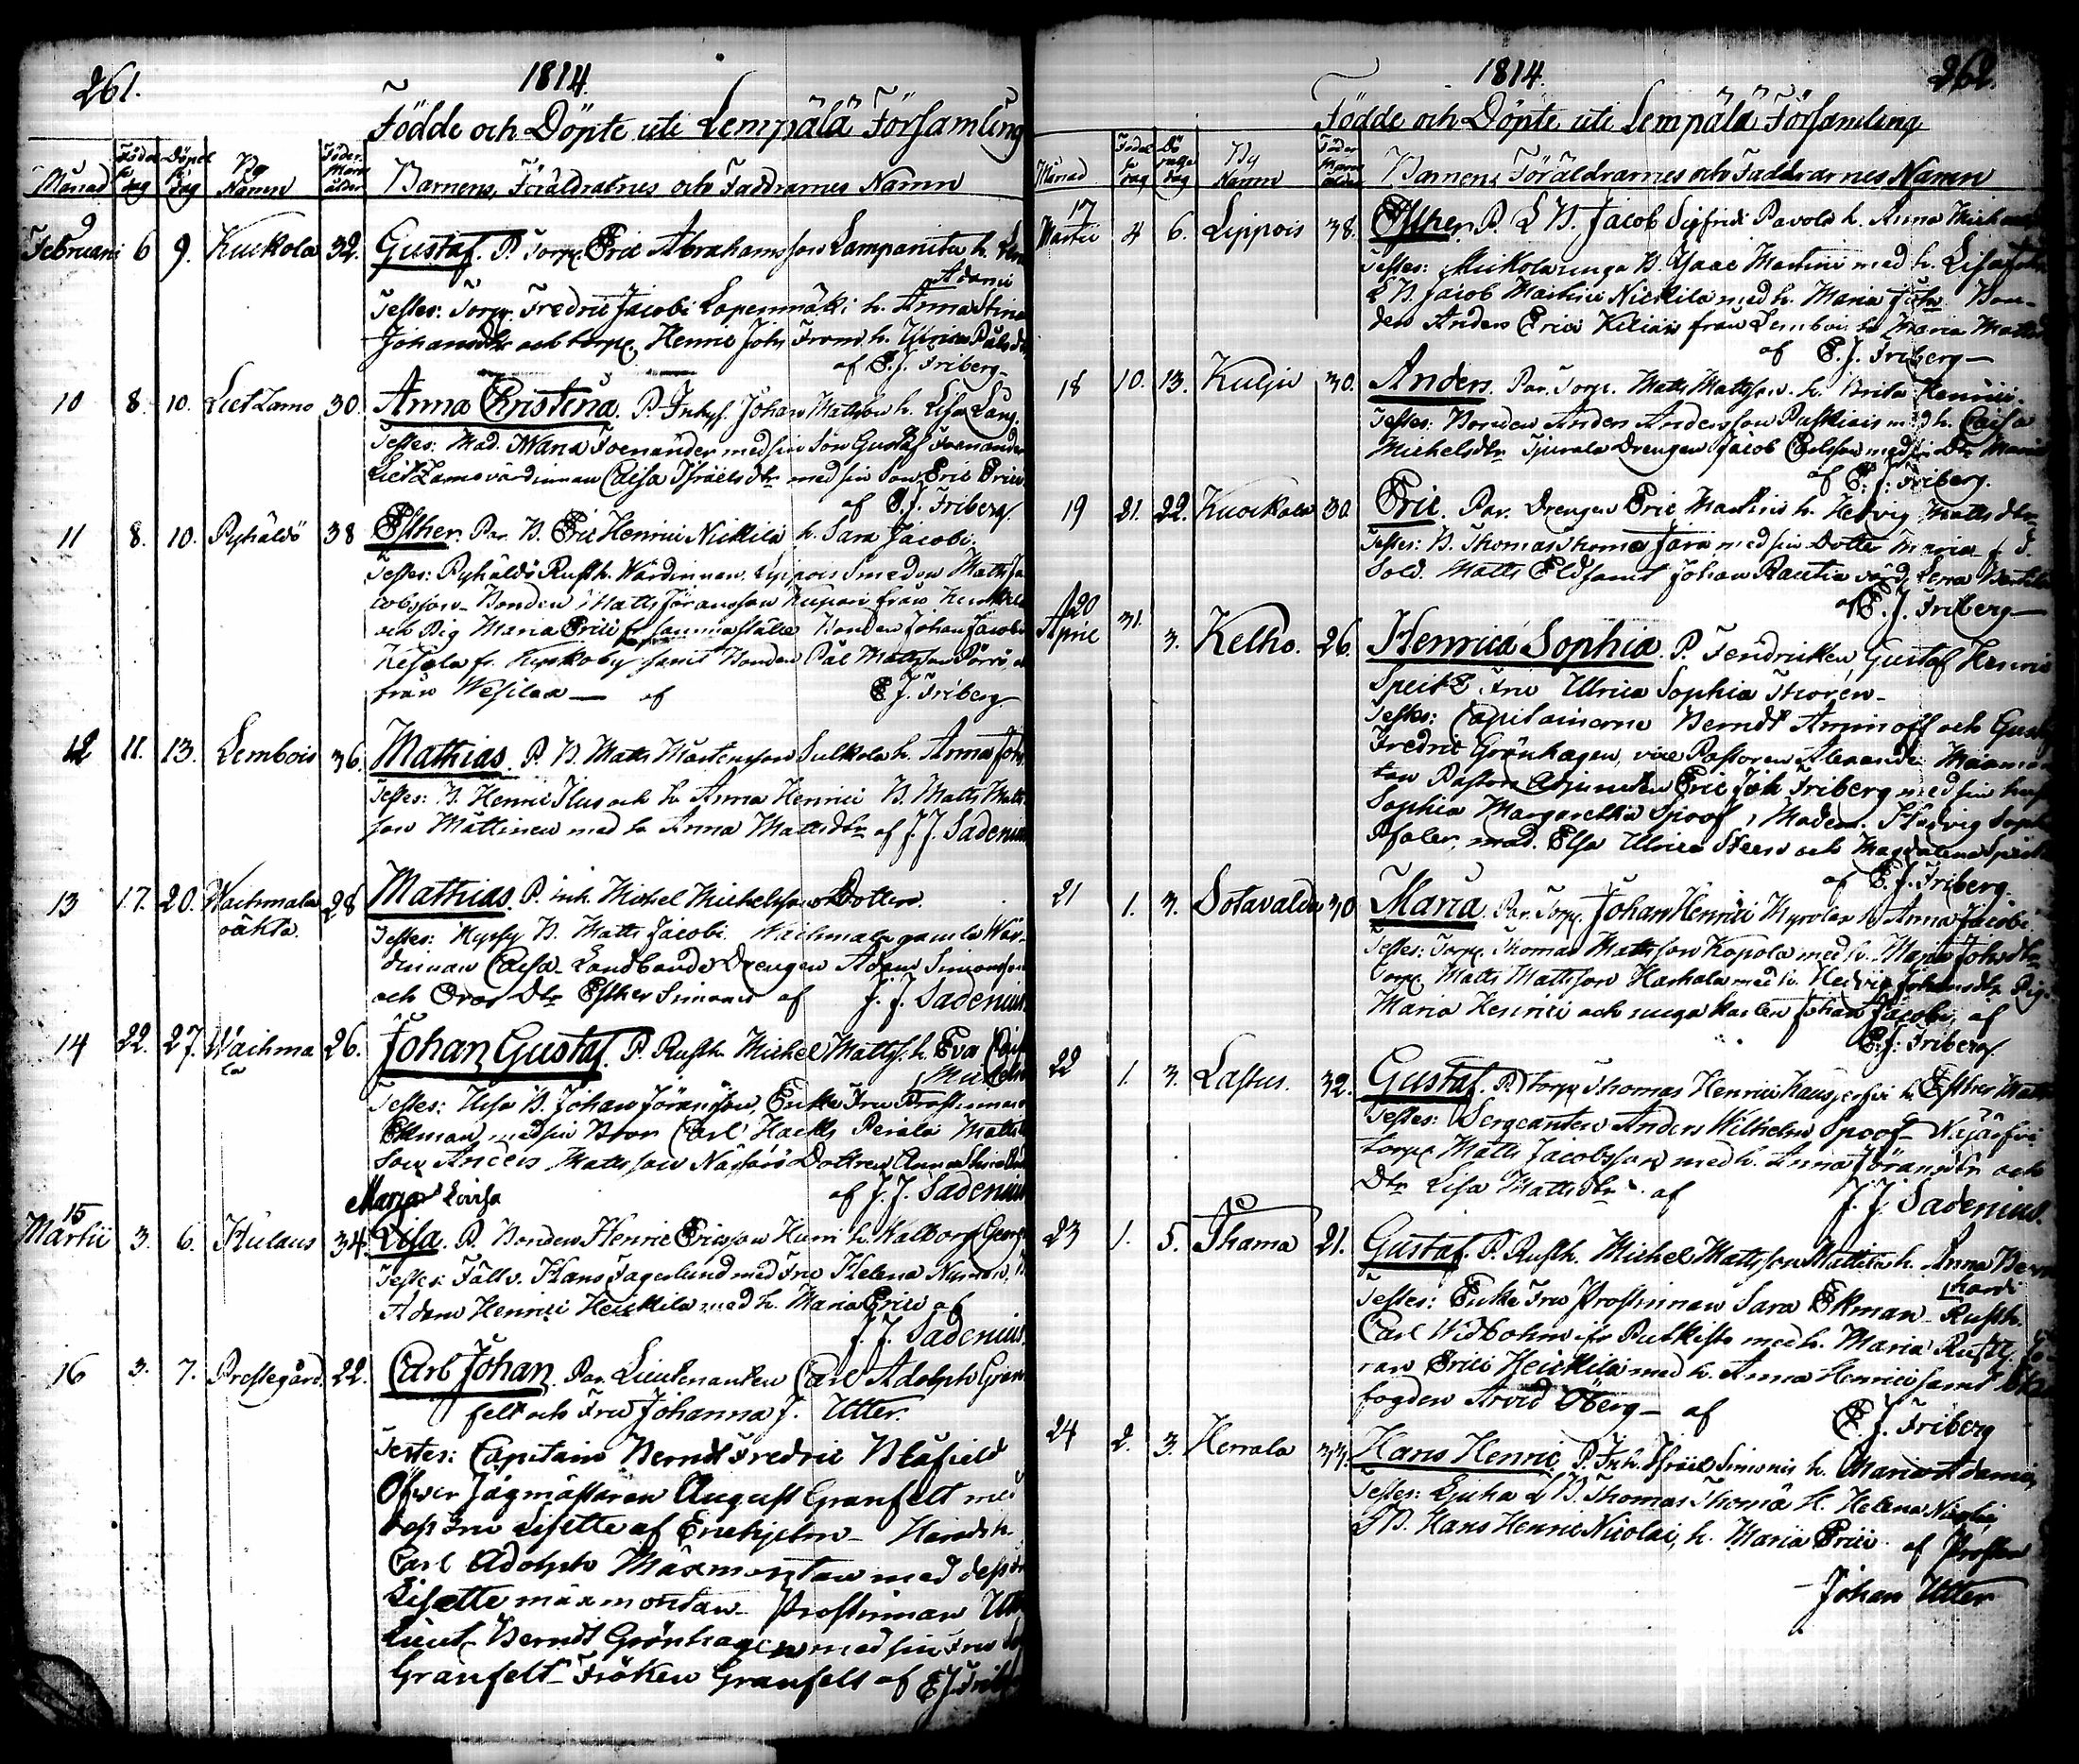 261.
1814.
Födde och Döpte uti Lempälä Församling
Månad Födelse dag Döpelse dag By Namn Föder Mors ålder Barnens, Föräldrarnes och Faddrarnes Namn
9
Februarii 6 9. Kuckola 32. Gustaf. P. Torp. Eric Abrahamsson Lampanita h.
Adami
Testes: Torp. Fredric Jacobi Lopenmäki h. Anna Stina
Johansdr och torp. Henric Johs From h. Ulrica Pålsdr
af E. J. Friberg
10 8. 10. Lietzamo 30. Anna Christina. P. Inhys. Johan Mattsson h. Lisa Lars
Testes: Mad. Maria Foenander med sin Son Gustaf Foenander
Lietzamo värdinnan Caisa Israelsdr med sin Son Eric Erici
af E. J. Friberg.
11 8. 10. Pyhäldö 38 Esther. Par. B. Eric Henrici Nickilä h. Sara Jacobi.
Testes: Pyhäldö Rusth. Wärdinnan, Lippois Smeden Matts Ja
cobsson Bonden Matts Jöransson
och Pig Maria Erici samma ställe Bonden Johan Jacobi
Kesola fr. Kyrkoby samt Bonden Pål Mattsson
från Wesilax — af E. J. Friberg
12 11. 13. Lembois 36. Mathias. P. B. Matts Mårtensson Sulkola h. Anna Johs
Testes: B. Henric Ilus och h. Anna Henrici B. Matts Matts
son Mattinen med h. Anna Mattsdr af J. J. Sadenius
13 17. 20. Wachmala 28 Mathias. P. inh. Michel Michelsson Dotter.
råhta. Testes: Kyrfy B. Matts Jacobi. Wachmala gamla Wär
dinnan Caisa Landbonde Drengen Adam Simonsson
och Dtr Esther Simons af J. J. Sadenius
14 22. 27. Wachma 26. Johan Gustaf. P. Rusth. Michel Matts. h. Eva Caisa
la Michels
Testes: B. Johan Jöransson, Enke Fru Prostinnan
Ekman med sin Bror Carl Perala Matts
Son Anders Mattsson Dottren Anna
Maria Lovisa af J. J. Sadenius
15
Martii 3. 6. Hulaus 34. Lisa. P. Bonden Henric Ericsson Hurri h. Walborg Georg
Testes: Fältv. Hans Fagerlund med Fru Helena Numan,
Adam Henrici Heickilä med h. Maria Erici af
J. J. Sadenius.
16 3. 7. Prestegård. 22. Carl Johan. Par. Lieutenanten Carl Adolph Gran
felt och Fru Johanna J. Utter.
Testes: Capitain Berndt Fredric Blåfield
Öfver Jägmästaren August Granfelt med
dess Fru Lisette af Enehjelm — Häradsh.
Carl Adolph Maxmontan med dess
Lisette maxmontan Prostinnan Utter
Lieut. Berndt Grönhagen med sin Fru
Granfelt — Fröken Granfelt af E J. Friberg
262.
1814.
Födde och Döpte uti Lempälä Församling
Månad Födelse dag Döpelse dag By Namn Föder Mors ålder Barnens, Föräldrarnes och Faddrarnes Namn
17
Martii 4 6. Lippois 38. Esther. P. L. B. Jacob Sigfrids Pavola h. Anna Michaels
Testes: Mickola unga B. Isaac Martini med h. Lisa
L B. Jacob Martini Nickila med h. Maria Bon-
den Anders Erici Kiliäi från Lembois h Maria Matts
af E. J. Friberg —
18 10. 13. Kulju 30. Anders. Par. Torp. Matts Mattsson h. Brita Henrici.
Testes: Bonden Anders Andersson Paskiais med h. Caisa
Michelsdtr Drengen Jacob Carlsson med sin Dtr Maria
af E. J. Friberg.
19 21. 22. Kuockala 30. Eric. Par. Drengen Eric Martini h. Hedvig Mattsdtr
Testes: B. Thomas Thomæ Jara med sin Dotter Maria
Sold. Matts Eld samt Johan Rautia värd. Lena
af E. J. Friberg —
20
April 31. 3. Kelho. 26. Henrica Sophia. P. Fendricken Gustaf Henric
Speitz Fru Ulrica Sophia Thorén —
Testes: Capitainerne Berndt Aminoff och Gustaf
Fredric Grönhagen, vice Pastoren Alexander Maxmon
tan Pastors Adjuncten Eric Joh Friberg med sin hust
Sophia Margaretha Spoof, Madem. Hedvig Soph
Pfaler, mad. Elsa Ulrica Steen och Magdalena Speitz
af E. J. Friberg.
21 1. 3. Sotavalda 30 Maria. Par. Torp. Johan Henrici Myrolan h. Anna Jacobi
Testes: Torp. Thomas Mattsson Kopola med h. Maria Johsdtr
Torp. Matts Mattsson Harhala med h. Hedvig Johansdtr Pig.
Maria Henrici och unga Karlen Johan Jacobi, af
E. J. Friberg.
22 1. 3. Lastus. 32. Gustaf. P. torp. Thomas Henrici h. Esther Matts
Testes: Sergeanten Anders Wilhelm Spoof — Najärfvi
torp. Matts Jacobsson med h. Anna Jöransdtr och
Dtr Lisa Mattsdtr. af J. J. Sadenius.
23 1. 5. Thama 21. Gustaf. P. Rusth. Michel Mattsson Mattila h. Anna Bern
hardi
Testes: Enke Fru Prostinnan Sara Ekman — Rusth.
Carl Widbohm ifr. Putkisto med h. Maria Rusth.
ran Erici Heickilä med h. Anna Henrici samt
fogden Arvid Öberg — af E J. Friberg
24 2. 3. Herrala 33. Hans Henric. P. Inh. Israel Simonis h. Maria Adami,
Testes: Ljuha L B. Thomas Thomæ h. Helena Nicolai,
L B. Hans Henric Nicolai, h. Maria Erici. af Prosten
Johan Utter